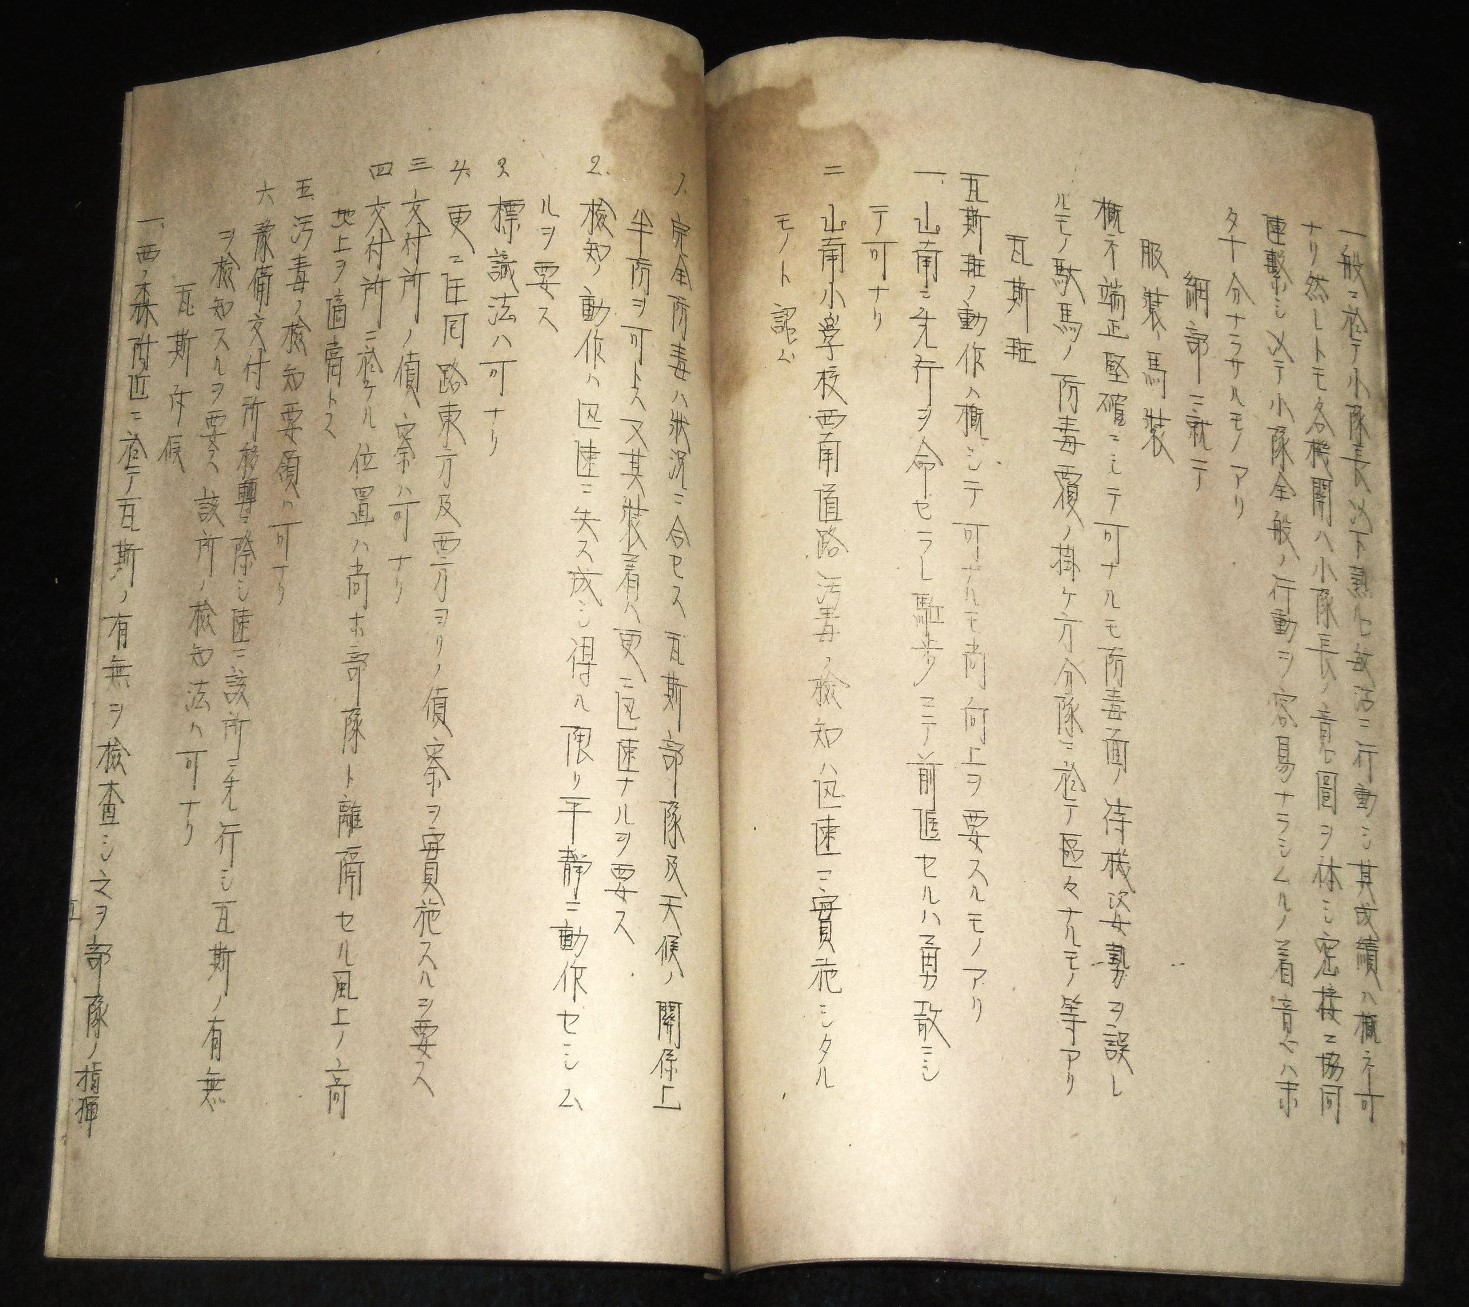 一般ニ於テ小隊長以下熱心敏活ニ行動シ其成績ハ概ネ可
ナリ然レトモ各機関ハ小隊長ノ意図ヲ体シ密接ニ協同
連繋シ以テ小隊全般ノ行動ヲ容易ナラシムルノ着意ハ未
タ十分ナラサルモノアリ
細部ニ就テ
服装馬装
概ネ端正堅確ニシテ可ナルモ防毒面ノ待機姿勢ヲ誤レ
ルモノ駄馬ノ防毒覆ノ掛ケ方分隊ニ於テ区々ナルモノ等アリ
瓦斯班
瓦斯班ノ動作ハ概シテ可ナルモ尚向上ヲ要スルモノアリ
一、山南ニ先行ヲ命セラレ駈歩ニテ前進セルハ勇敢ニシ
テ可ナリ
二 山南小学校西南道路汚毒ノ検知ハ迅速ニ實施シタル
モノト認ム
1. 完全防毒ハ状況ニ合セス 瓦斯部隊及天候ノ關係上
半防ヲ可トス又其装着ハ更ニ迅速ナルヲ要ス
2. 檢知ノ動作ハ迅速ニ失ス成シ得ル限リ平静ニ動作セシム
ルヲ要ス
3. 標識法ハ可ナリ
4. 更ニ迂回路東方及西方ヲリノ偵察ヲ實施スルヲ要ス
三 交付所ノ偵察ハ可ナリ
四 交付所ニ於ケル位置ハ尚ホ部隊ト離隔セル風上ノ高
地上ヲ適当トス
五 汚毒ノ檢知要領ハ可ナリ
六 豫備交付所移轉ニ際シ速ニ該所ニ先行シ瓦斯ノ有無
ヲ檢知スルヲ要ス 該所ノ檢知法ハ可ナリ
瓦斯斥候
一、西ノ森附近ニ於テ瓦斯ノ有無ヲ檢査シ之ヲ部隊ノ指揮